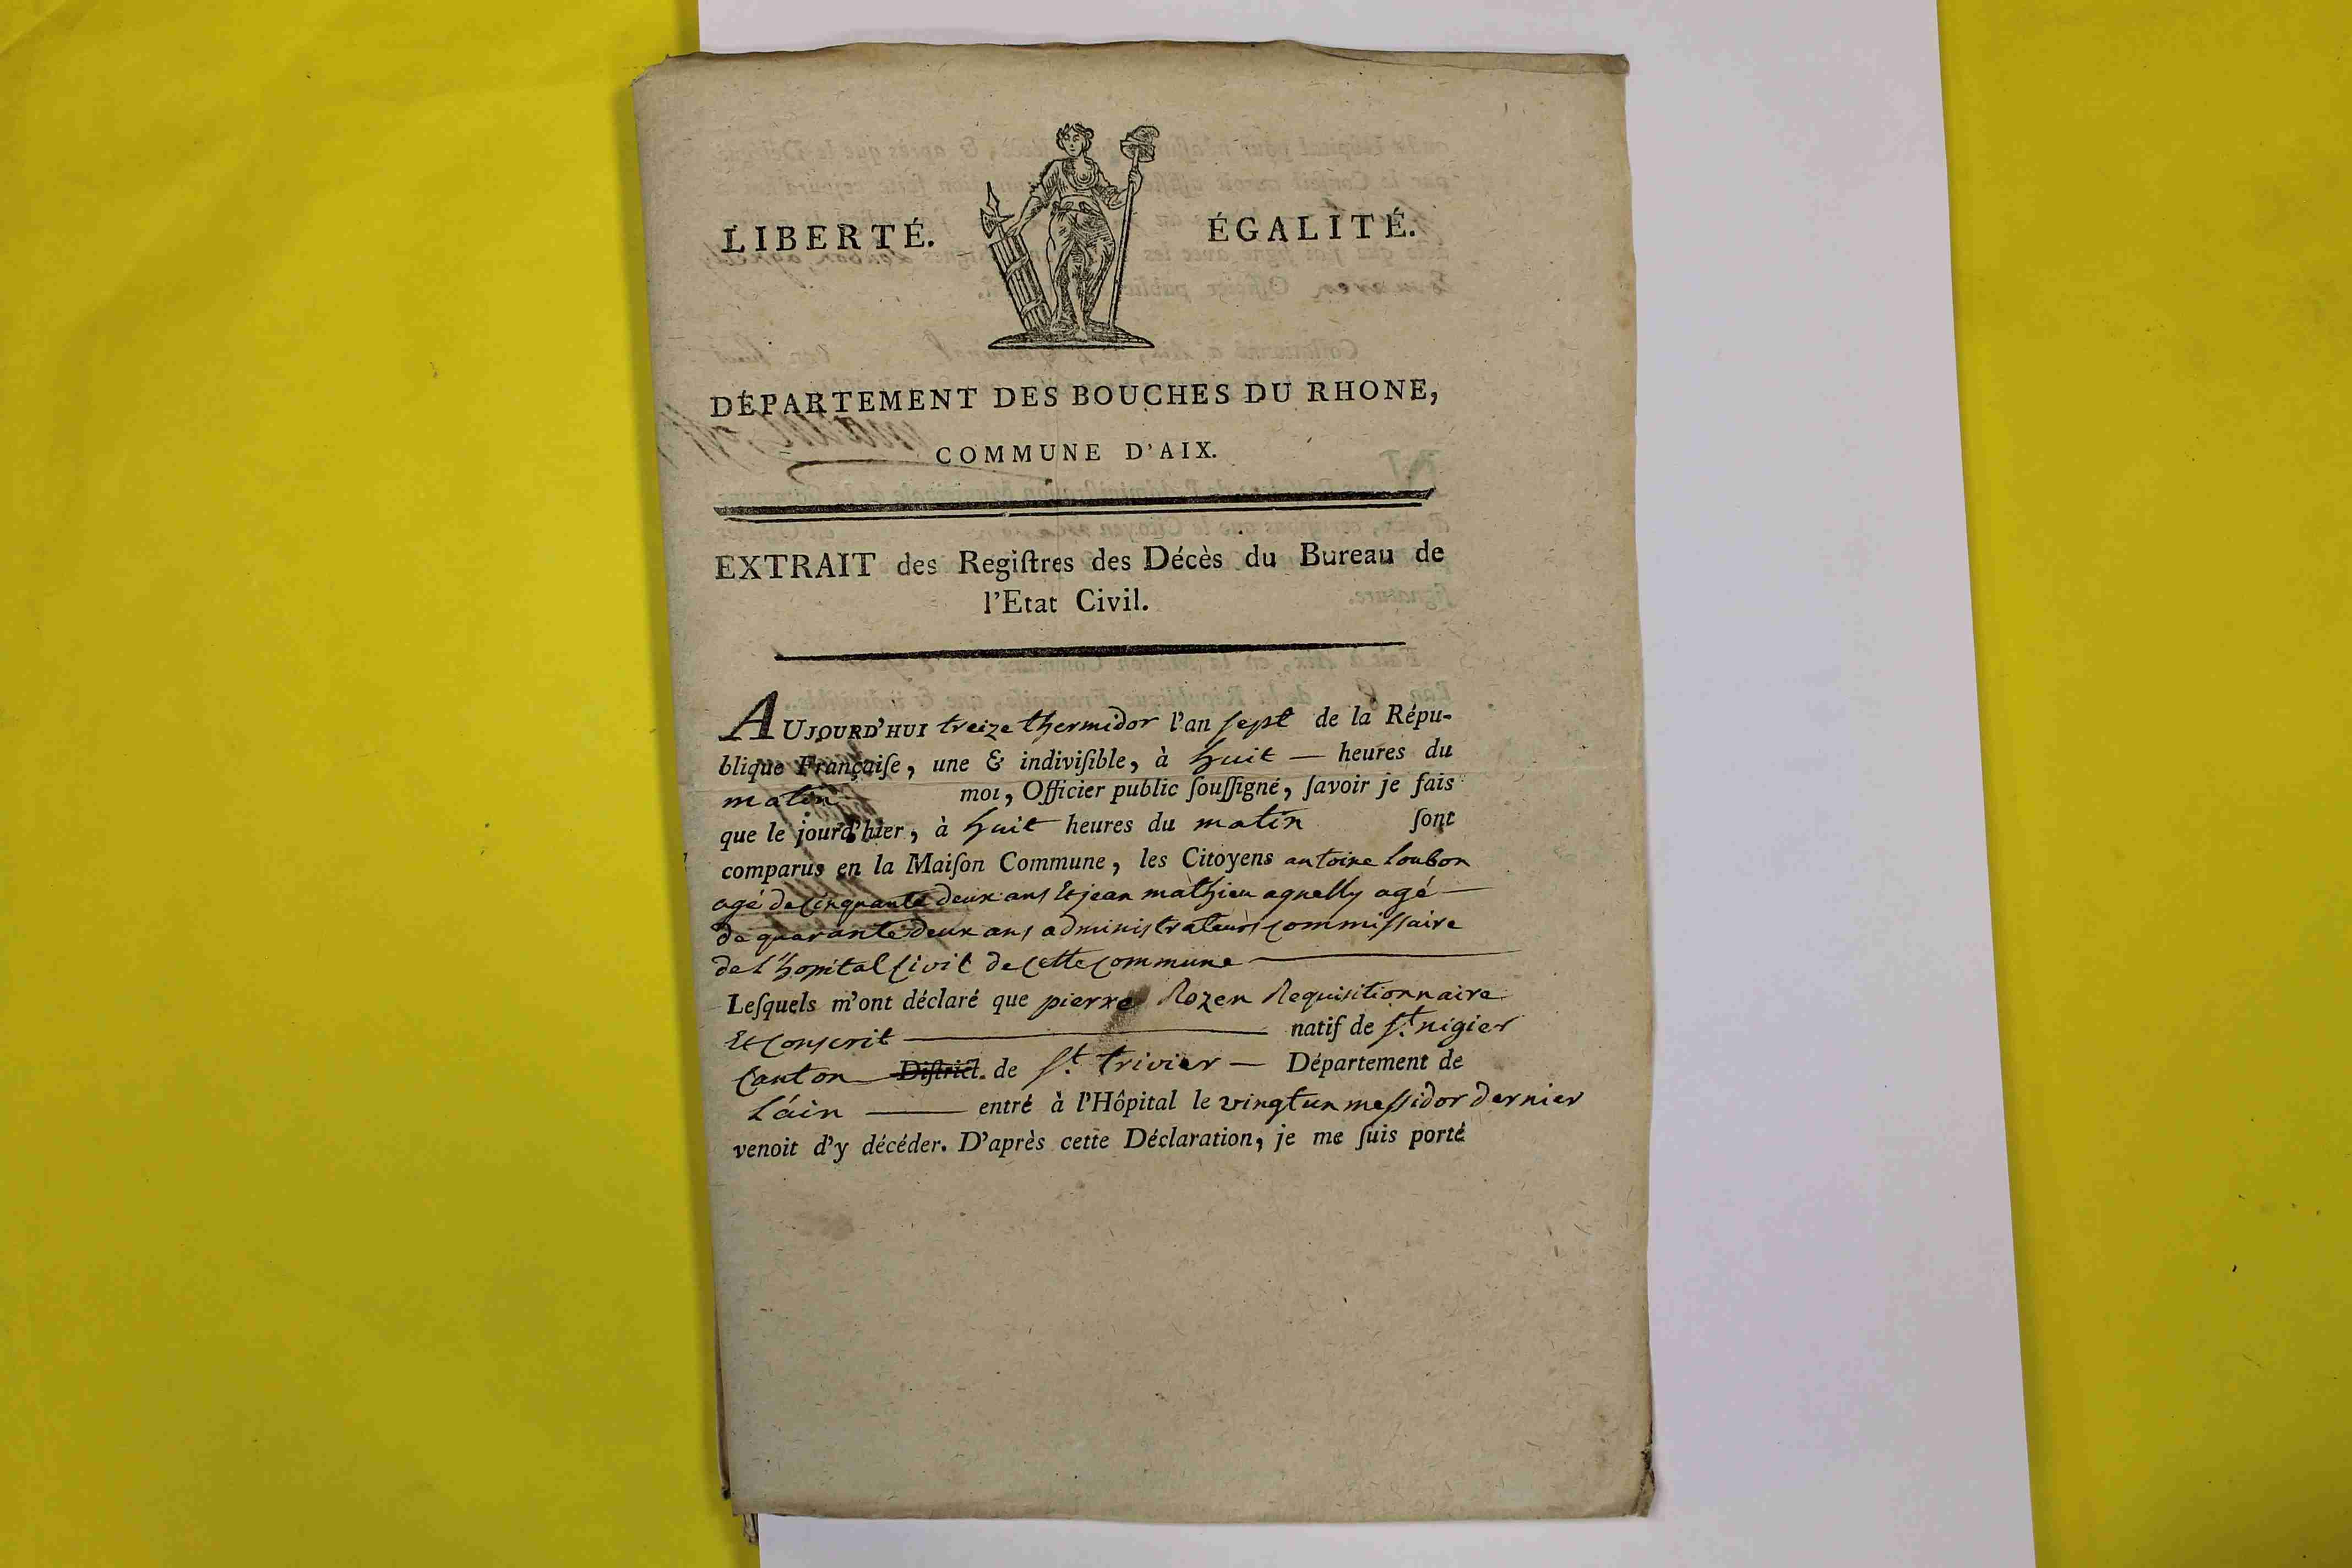 LIBERTÉ. ÉGALITÉ.
DÉPARTEMENT DES BOUCHES DU RHONE,
COMMUNE D'AIX.
EXTRAIT des Regiſtres des Décès du Bureau de
l'Etat Civil.
AUJOURD'HUI treize thermidor l'an sept de la Répu-
blique Françaiſe, une & indiviſible, à huit — heures du
matin moi, Officier public ſouſſigné, ſavoir je fais
que le jourd'hier, à huit heures du matin ſont
comparus en la Maiſon Commune, les Citoyens antoine loubon
agé de cinquante deux ans Et jean mathieu agnelly agé —
de quarante deux ans administrateurs commiſsaire
de l'hopital Civil de cette commune —
Leſquels m'ont déclaré que pierre Rozen Requisitionnaire
Et Conscrit — natif de St. nigier
Canton District. de St. trivier — Département de
L'ain — entré à l'Hôpital le vingt un meſsidor dernier
venoit d'y décéder. D'après cette Déclaration, je me ſuis porté